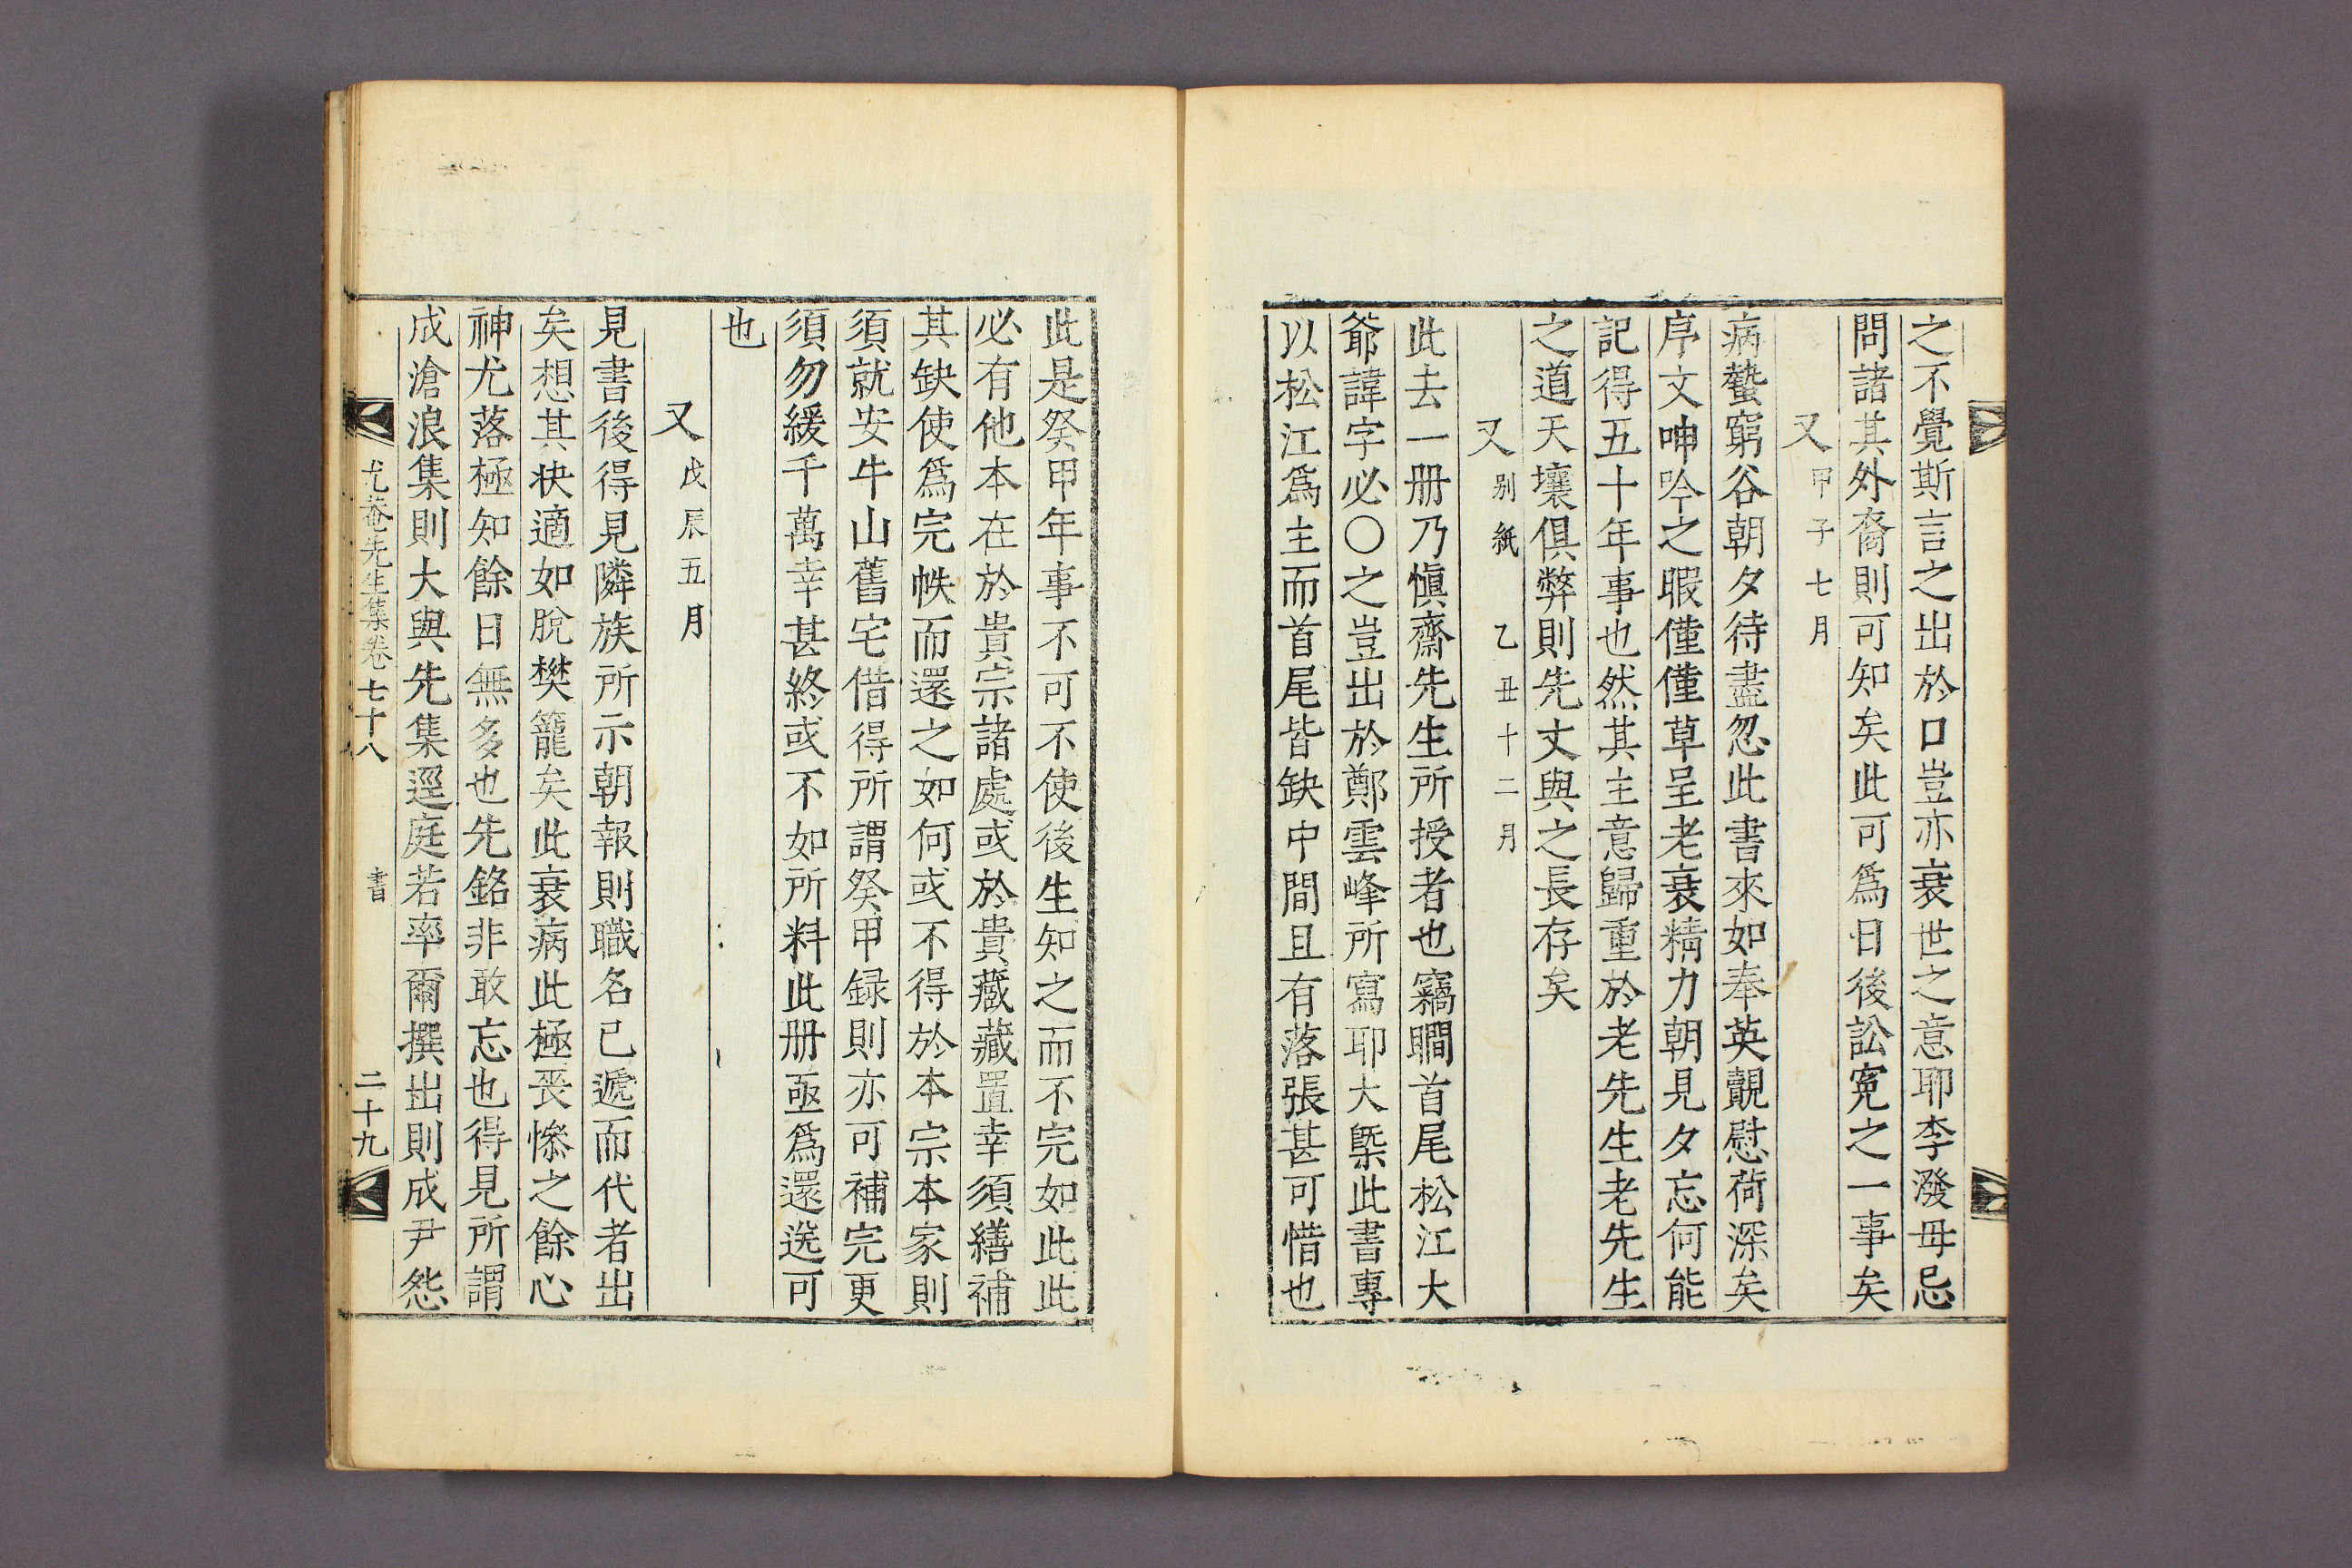 之不覺斯言之出於口豈亦衰世之意耶李潑毋忌
問諸其外裔則可知矣此可爲日後訟寃之一事矣
又甲子七月
病蟄窮谷朝夕待盡忽此書來如奉英覿慰荷深矣
序文呻吟之暇僅僅草呈老衰精力朝見夕忘何能
記得五十年事也然其主意歸重於老先生老先生
之道天壤俱弊則先丈與之長存矣
又別紙 乙丑十二月
此去一册乃愼齋先生所授者也竊瞷首尾松江大
爺諱字必〇之豈出於鄭雲峰所寫耶大槩此書專
以松江爲主而首尾皆缺中間且有落張甚可惜也
此是癸甲年事不可不使後生知之而不完如此此
必有他本在於貴宗諸處或於貴藏藏置幸須繕補
其缺使爲完帙而還之如何或不得於本宗本家則
須就安牛山舊宅借得所謂癸甲録則亦可補完更
須勿緩千萬幸甚終或不如所料此册亟爲還送可
也
又戊辰五月
見書後得見隣族所示朝報則職名已遞而代者出
矣想其状適如脫樊籠矣此衰病此極喪慘之餘心
神尤落極知餘日無多也先銘非敢忘也得見所謂
成滄浪集則大與先集逕庭若率爾撰出則成尹怨
尤菴先生集卷七十八 書 二十九